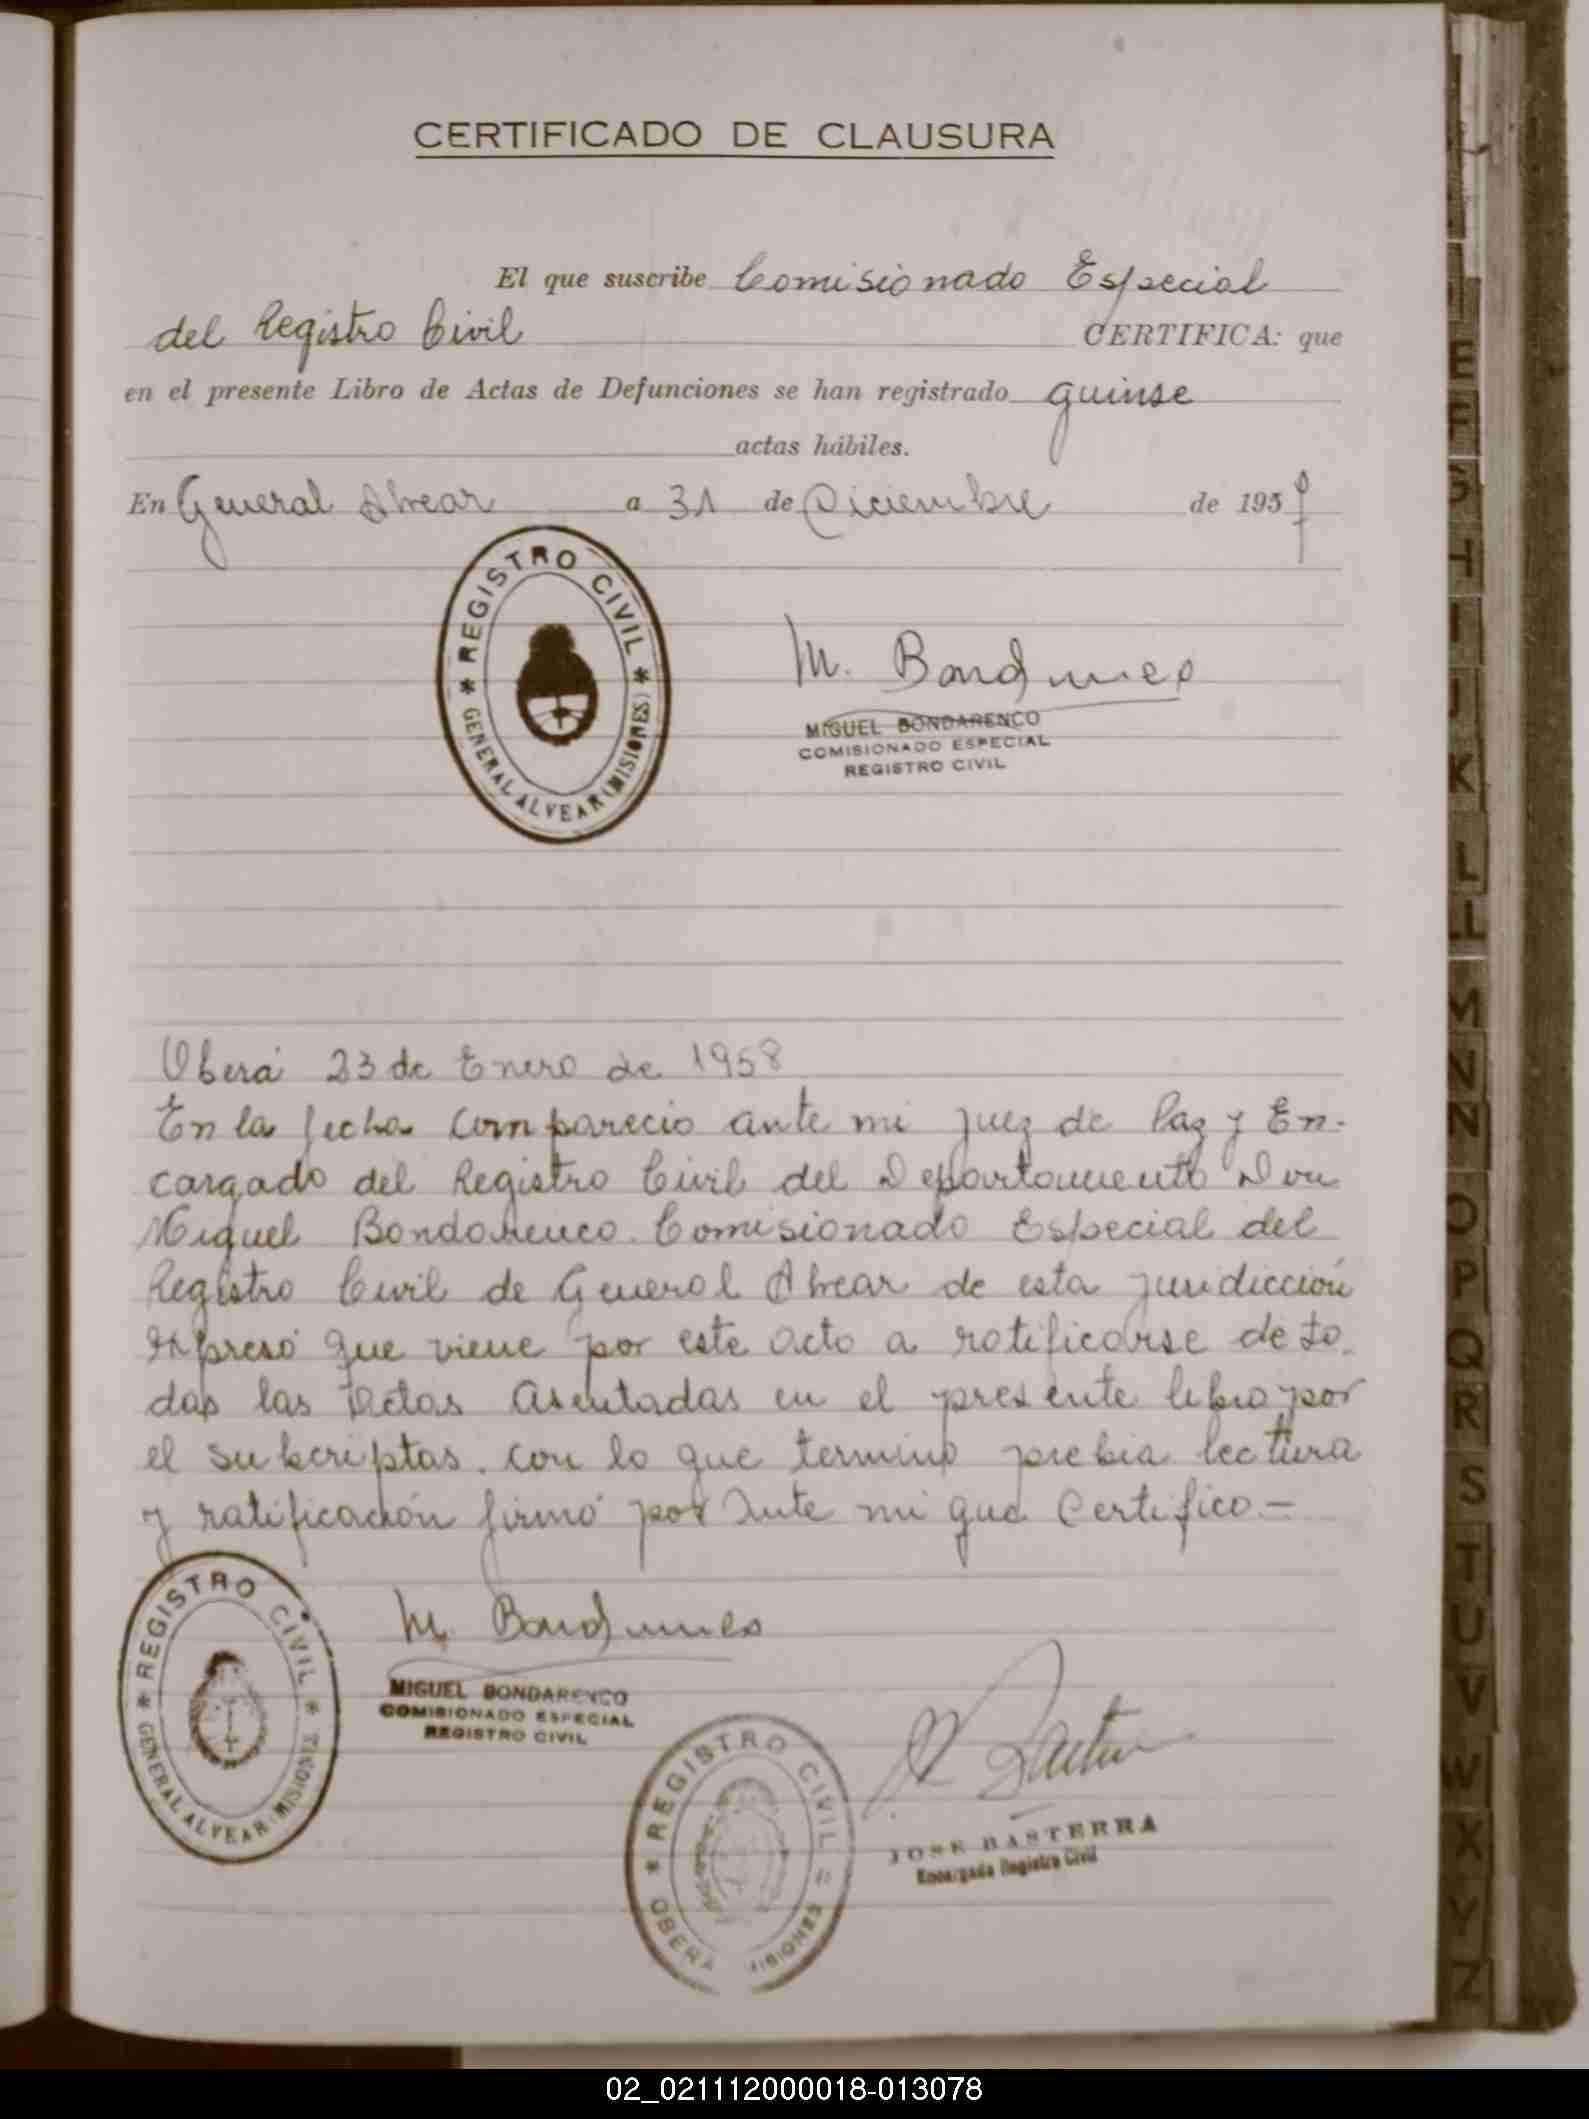 CERTIFICADO DE CLAUSURA
El que suscribe Comisionado Especial
del Registro Civil CERTIFICA: que
en el presente Libro de Actas de Defunciones se han registrado quinse
actas hábiles.
En General Alvear a 31 de Diciembre de 1957
REGISTRO CIVIL
GENERAL ALVEAR (MISIONES)
M. Bondarenco
MIGUEL BONDARENCO
COMISIONADO ESPECIAL
REGISTRO CIVIL
Oberá 23 de Enero de 1958
En la fecha comparecio ante mi juez de Paz y En-
cargado del Registro Civil del Departamento Don
Miguel Bondarenco. Comisionado Especial del
Registro Civil de General Alvear de esta juridicción
expresó que viene por este acto a ratificarse de to-
das las Actas asentadas en el presente libro por
el subcriptas. con lo que termino prebia lectura
y ratificación firmó por Ante mi que Certifico.-
REGISTRO CIVIL
GENERAL ALVEAR (MISIONES)
M. Bondarenco
MIGUEL BONDARENCO
COMISIONADO ESPECIAL
REGISTRO CIVIL
REGISTRO CIVIL
OBERA MISIONES
JOSE BASTERRA
Encargado Registro Civil
E
F
G
H
I
J
K
L
LL
M
N
Ñ
O
P
Q
R
S
T
U
V
W
X
Y
Z
02_021112000018-013078